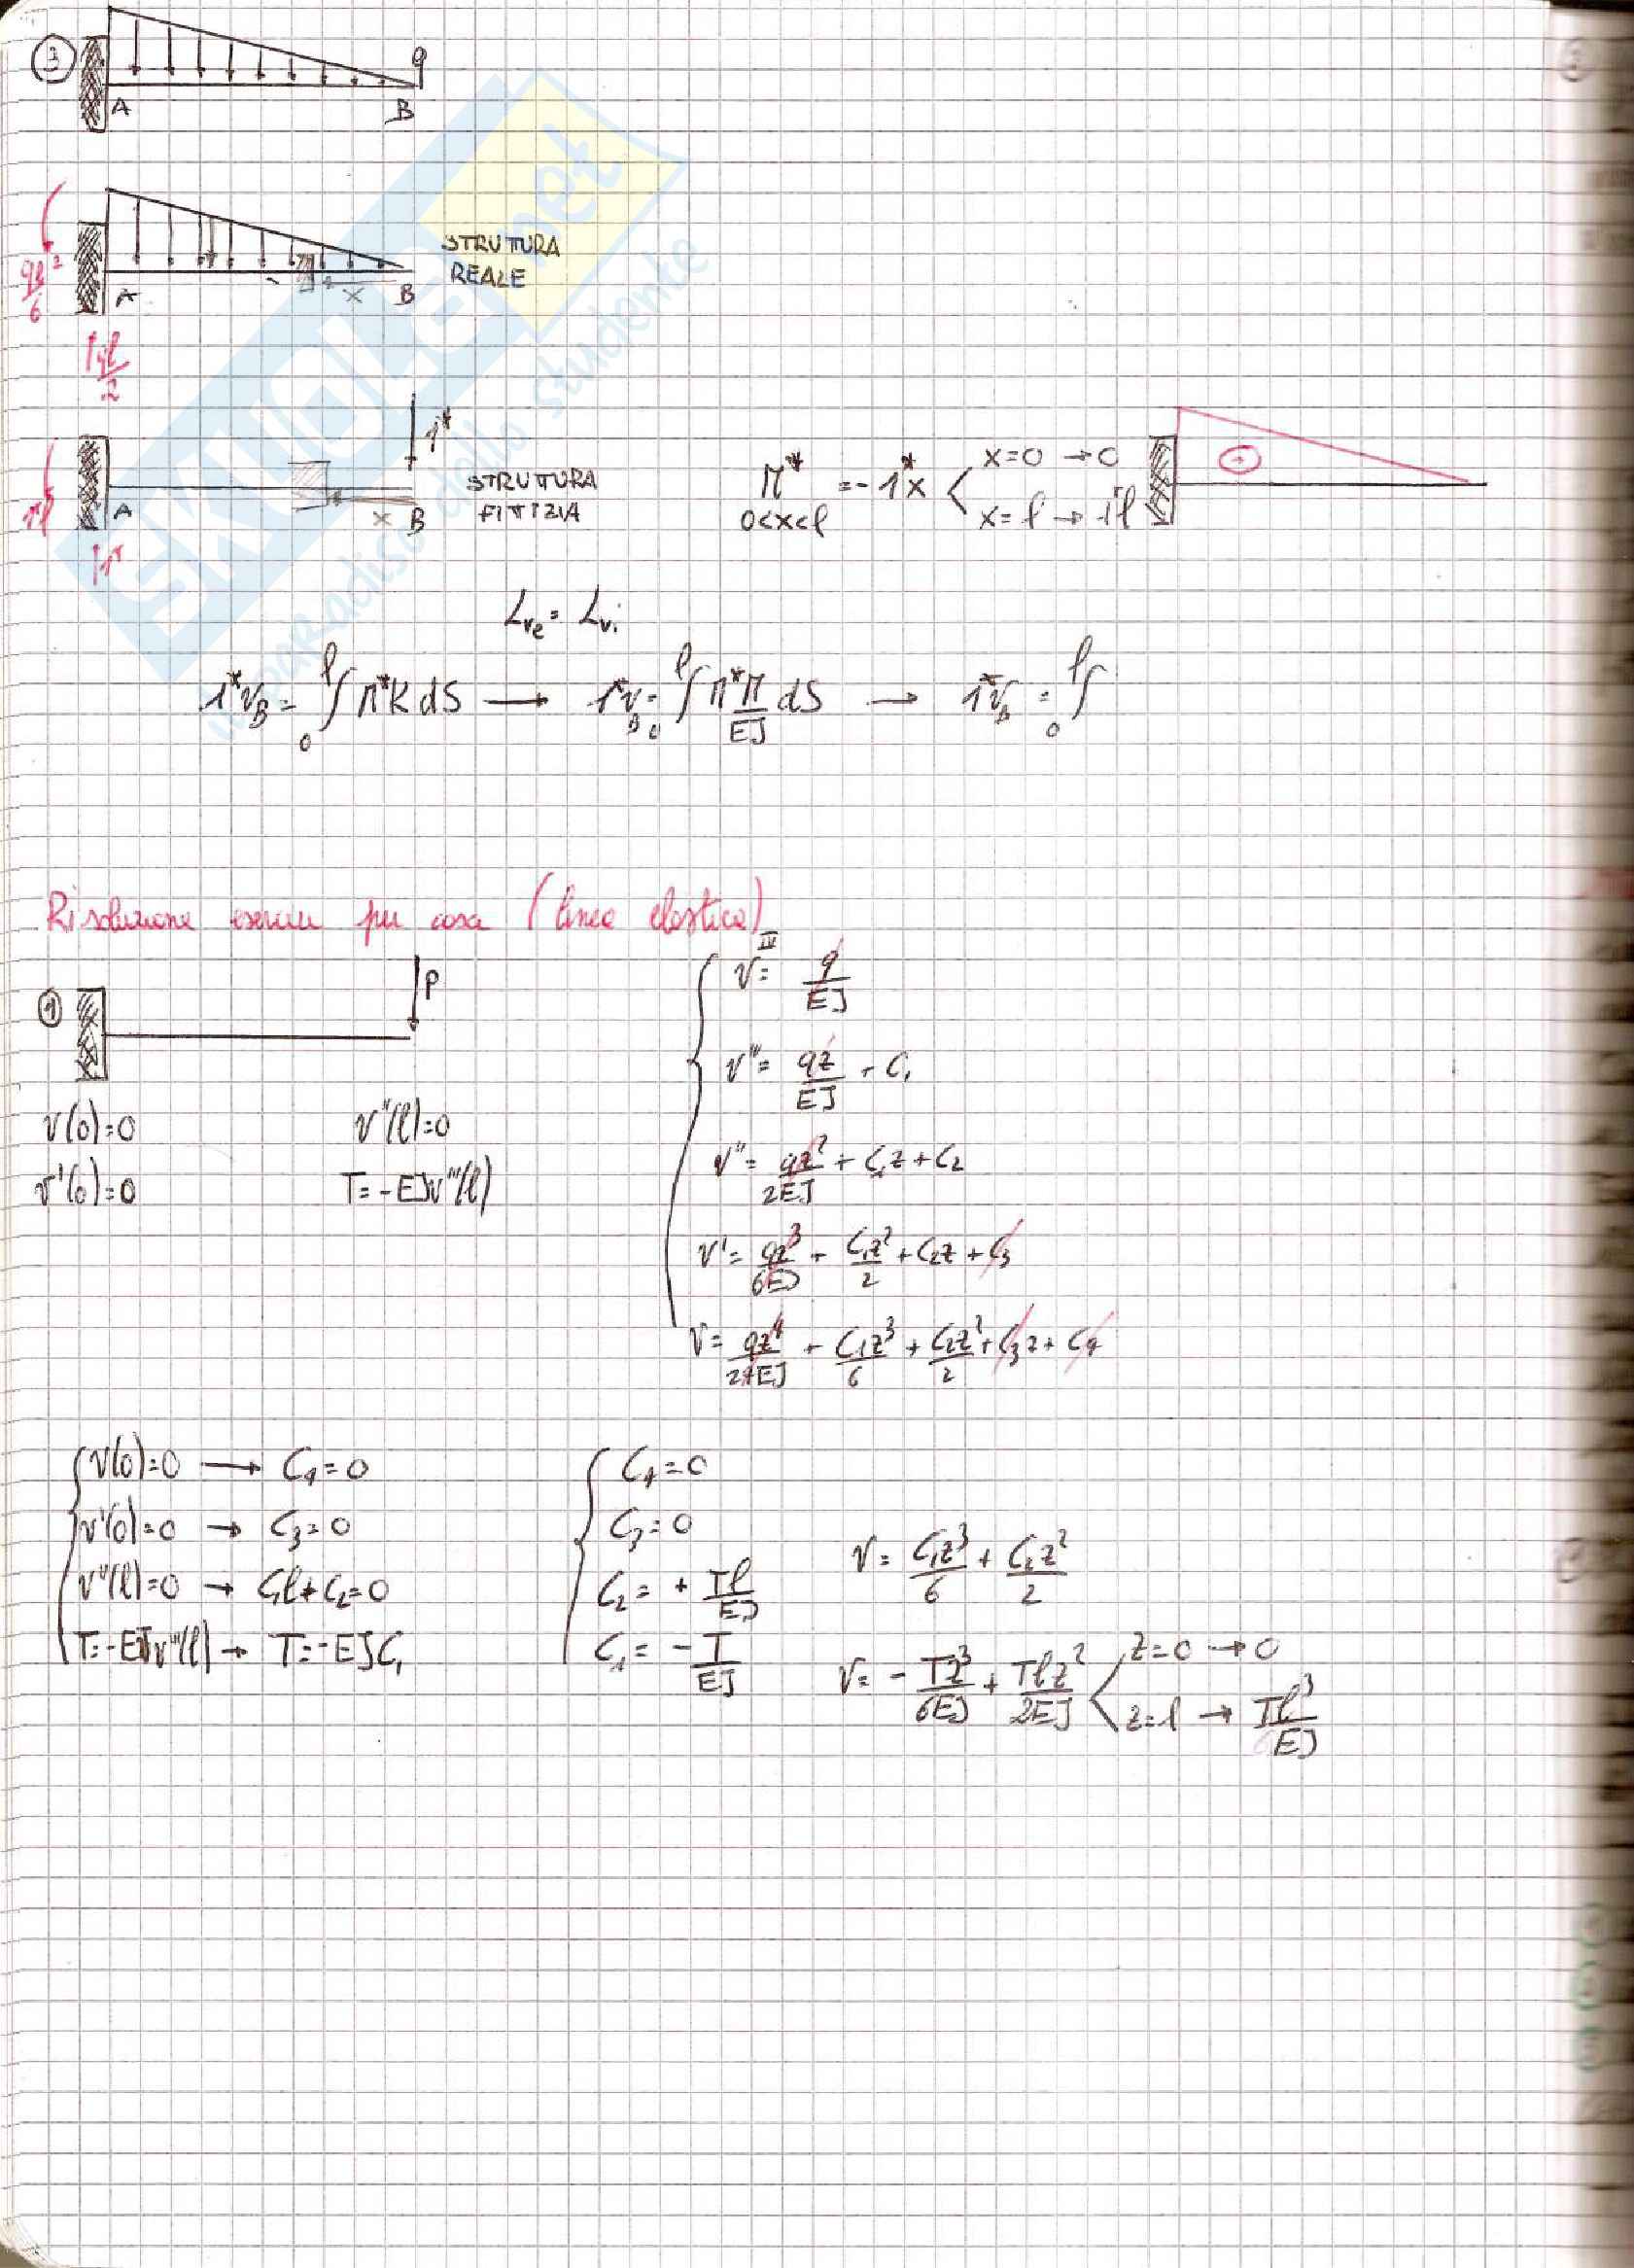 3
q
A B
STRUTTURA
REALE
ql²/6
A x B
ql/2
1*
STRUTTURA
FITTIZIA
1*l
A x B
1*
M* = -1*x
0<x<l
x=0 → 0
x=l → 1*l
Lve = Lvi
1*vB = ∫₀ˡ M*K dS → 1*vB = ∫₀ˡ M* M/EJ dS → 1*vB = ∫₀ˡ
Risoluzione esercizi per casa (linea elastica)
1
P
v(0)=0 v''(l)=0
v'(0)=0 T=-EJv'''(l)
vᴵⱽ = q/EJ
v''' = qz/EJ + C₁
v'' = qz²/2EJ + C₁z + C₂
v' = qz³/6EJ + C₁z²/2 + C₂z + C₃
v = qz⁴/24EJ + C₁z³/6 + C₂z²/2 + C₃z + C₄
v(0)=0 → C₄=0
v'(0)=0 → C₃=0
v''(l)=0 → C₁l+C₂=0
T=-EJv'''(l) → T=-EJC₁
C₄=0
C₃=0
C₂= + Tl/EJ
C₁= - T/EJ
v = C₁z³/6 + C₂z²/2
v = - Tz³/6EJ + Tlz²/2EJ
z=0 → 0
z=l → Tl³/EJ
SKUOLA.net
il paradiso dello studente